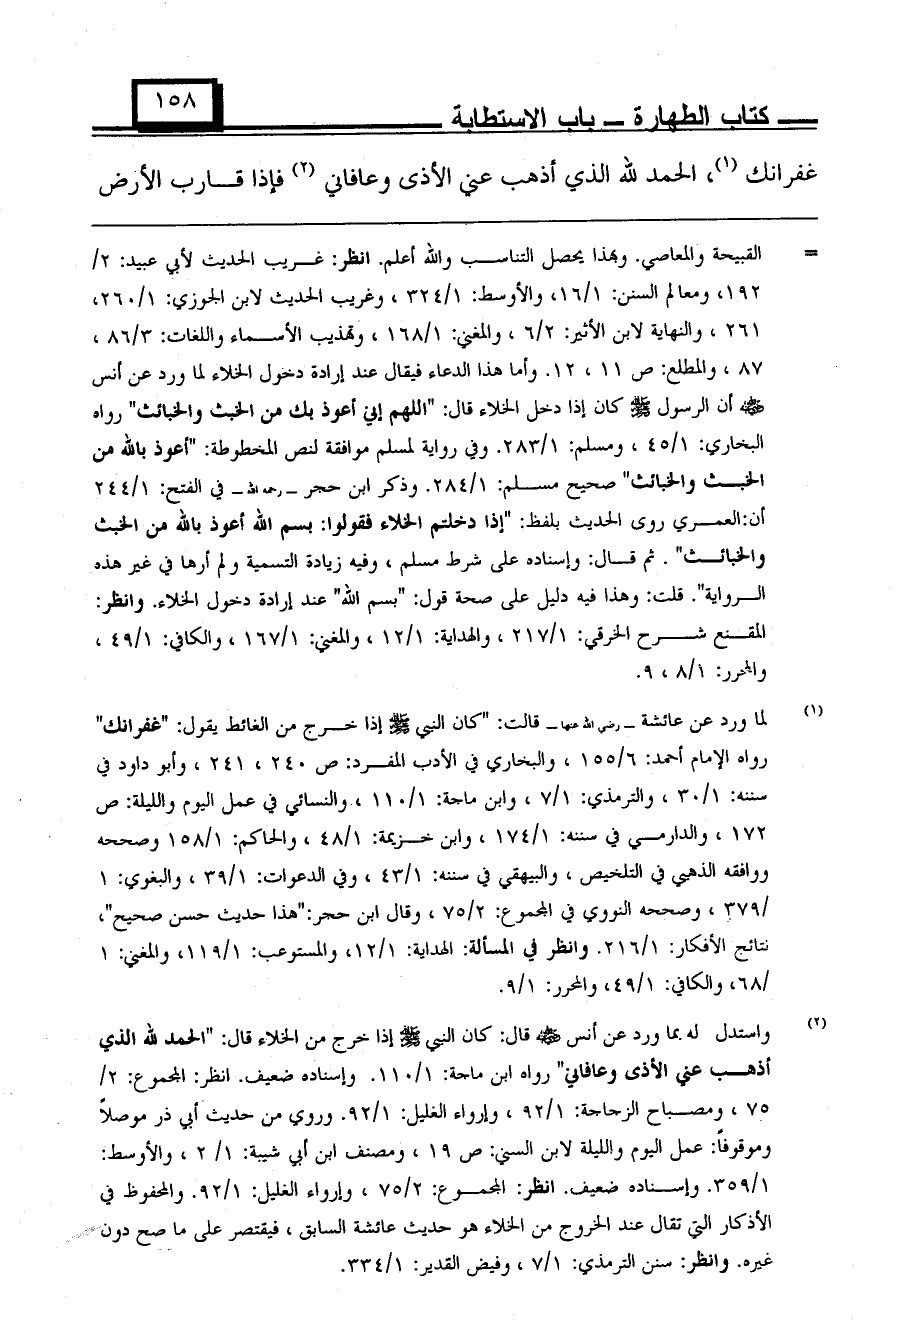 ١٥٨
كتاب الطهارة ــ باب الاستطابة
غفرانك (١)، الحمد لله الذي أذهب عني الأذى وعافاني (٢) فإذا قارب الأرض
= القبيحة والمعاصي. وبهذا يحصل التناسب والله أعلم. انظر: غريب الحديث لأبي عبيد: ٢/
١٩٢، ومعالم السنن: ١٦/١، والأوسط: ٣٢٤/١ ، وغريب الحديث لابن الجوزي: ٢٦٠/١،
٢٦١ ، والنهاية لابن الأثير: ٦/٢ ، والمغني: ١٦٨/١ ، وتهذيب الأسماء واللغات: ٨٦/٣ ،
٨٧ ، والمطلع: ص ١١ ، ١٢. وأما هذا الدعاء فيقال عند إرادة دخول الخلاء لما ورد عن أنس
رضي الله عنه أن الرسول ﷺ كان إذا دخل الخلاء قال: "اللهم إني أعوذ بك من الخبث والخبائث" رواه
البخاري: ٤٥/١ ، ومسلم: ٢٨٣/١. وفي رواية لمسلم موافقة لنص المخطوطة: "أعوذ بالله من
الخبث والخبائث" صحيح مسلم: ٢٨٤/١. وذكر ابن حجر ــ رحمه الله ــ في الفتح: ٢٤٤/١
أن:العمري روى الحديث بلفظ: "إذا دخلتم الخلاء فقولوا: بسم الله أعوذ بالله من الخبث
والخبائث" . ثم قال: وإسناده على شرط مسلم ، وفيه زيادة التسمية ولم أرها في غير هذه
الرواية". قلت: وهذا فيه دليل على صحة قول: "بسم الله" عند إرادة دخول الخلاء. وانظر:
المقنع شرح الخرقي: ٢١٧/١ ، والهداية: ١٢/١ ، والمغني: ١٦٧/١ ، والكافي: ٤٩/١ ،
والمحرر: ٨/١ ، ٩.
(١) لما ورد عن عائشة ــ رضي الله عنها ــ قالت: "كان النبي ﷺ إذا خرج من الغائط يقول: "غفرانك"
رواه الإمام أحمد: ١٥٥/٦ ، والبخاري في الأدب المفرد: ص ٢٤٠ ، ٢٤١ ، وأبو داود في
سننه: ٣٠/١ ، والترمذي: ٧/١ ، وابن ماجة: ١١٠/١ ، والنسائي في عمل اليوم والليلة: ص
١٧٢ ، والدارمي في سننه: ١٧٤/١ ، وابن خزيمة: ٤٨/١ ، والحاكم: ١٥٨/١ وصححه
ووافقه الذهبي في التلخيص ، والبيهقي في سننه: ٤٣/١ ، وفي الدعوات: ٣٩/١ ، والبغوي: ١
/٣٧٩ ، وصححه النووي في المجموع: ٧٥/٢ ، وقال ابن حجر:"هذا حديث حسن صحيح"،
نتائج الأفكار: ٢١٦/١. وانظر في المسألة: الهداية: ١٢/١، والمستوعب: ١١٩/١، والمغني: ١
/٦٨، والكافي: ٤٩/١، والمحرر: ٩/١.
(٢) واستدل له بما ورد عن أنس رضي الله عنه قال: كان النبي ﷺ إذا خرج من الخلاء قال: "الحمد لله الذي
أذهب عني الأذى وعافاني" رواه ابن ماجة: ١١٠/١. وإسناده ضعيف. انظر: المجموع: ٢/
٧٥ ، ومصباح الزجاجة: ٩٢/١ ، وإرواء الغليل: ٩٢/١. وروي من حديث أبي ذر موصلاً
وموقوفاً: عمل اليوم والليلة لابن السني: ص ١٩ ، ومصنف ابن أبي شيبة: ١/ ٢ ، والأوسط:
٣٥٩/١. وإسناده ضعيف. انظر: المجموع: ٧٥/٢ ، وإرواء الغليل: ٩٢/١. والمحفوظ في
الأذكار التي تقال عند الخروج من الخلاء هو حديث عائشة السابق ، فيقتصر على ما صح دون
غيره. وانظر: سنن الترمذي: ٧/١ ، وفيض القدير: ٣٣٤/١.